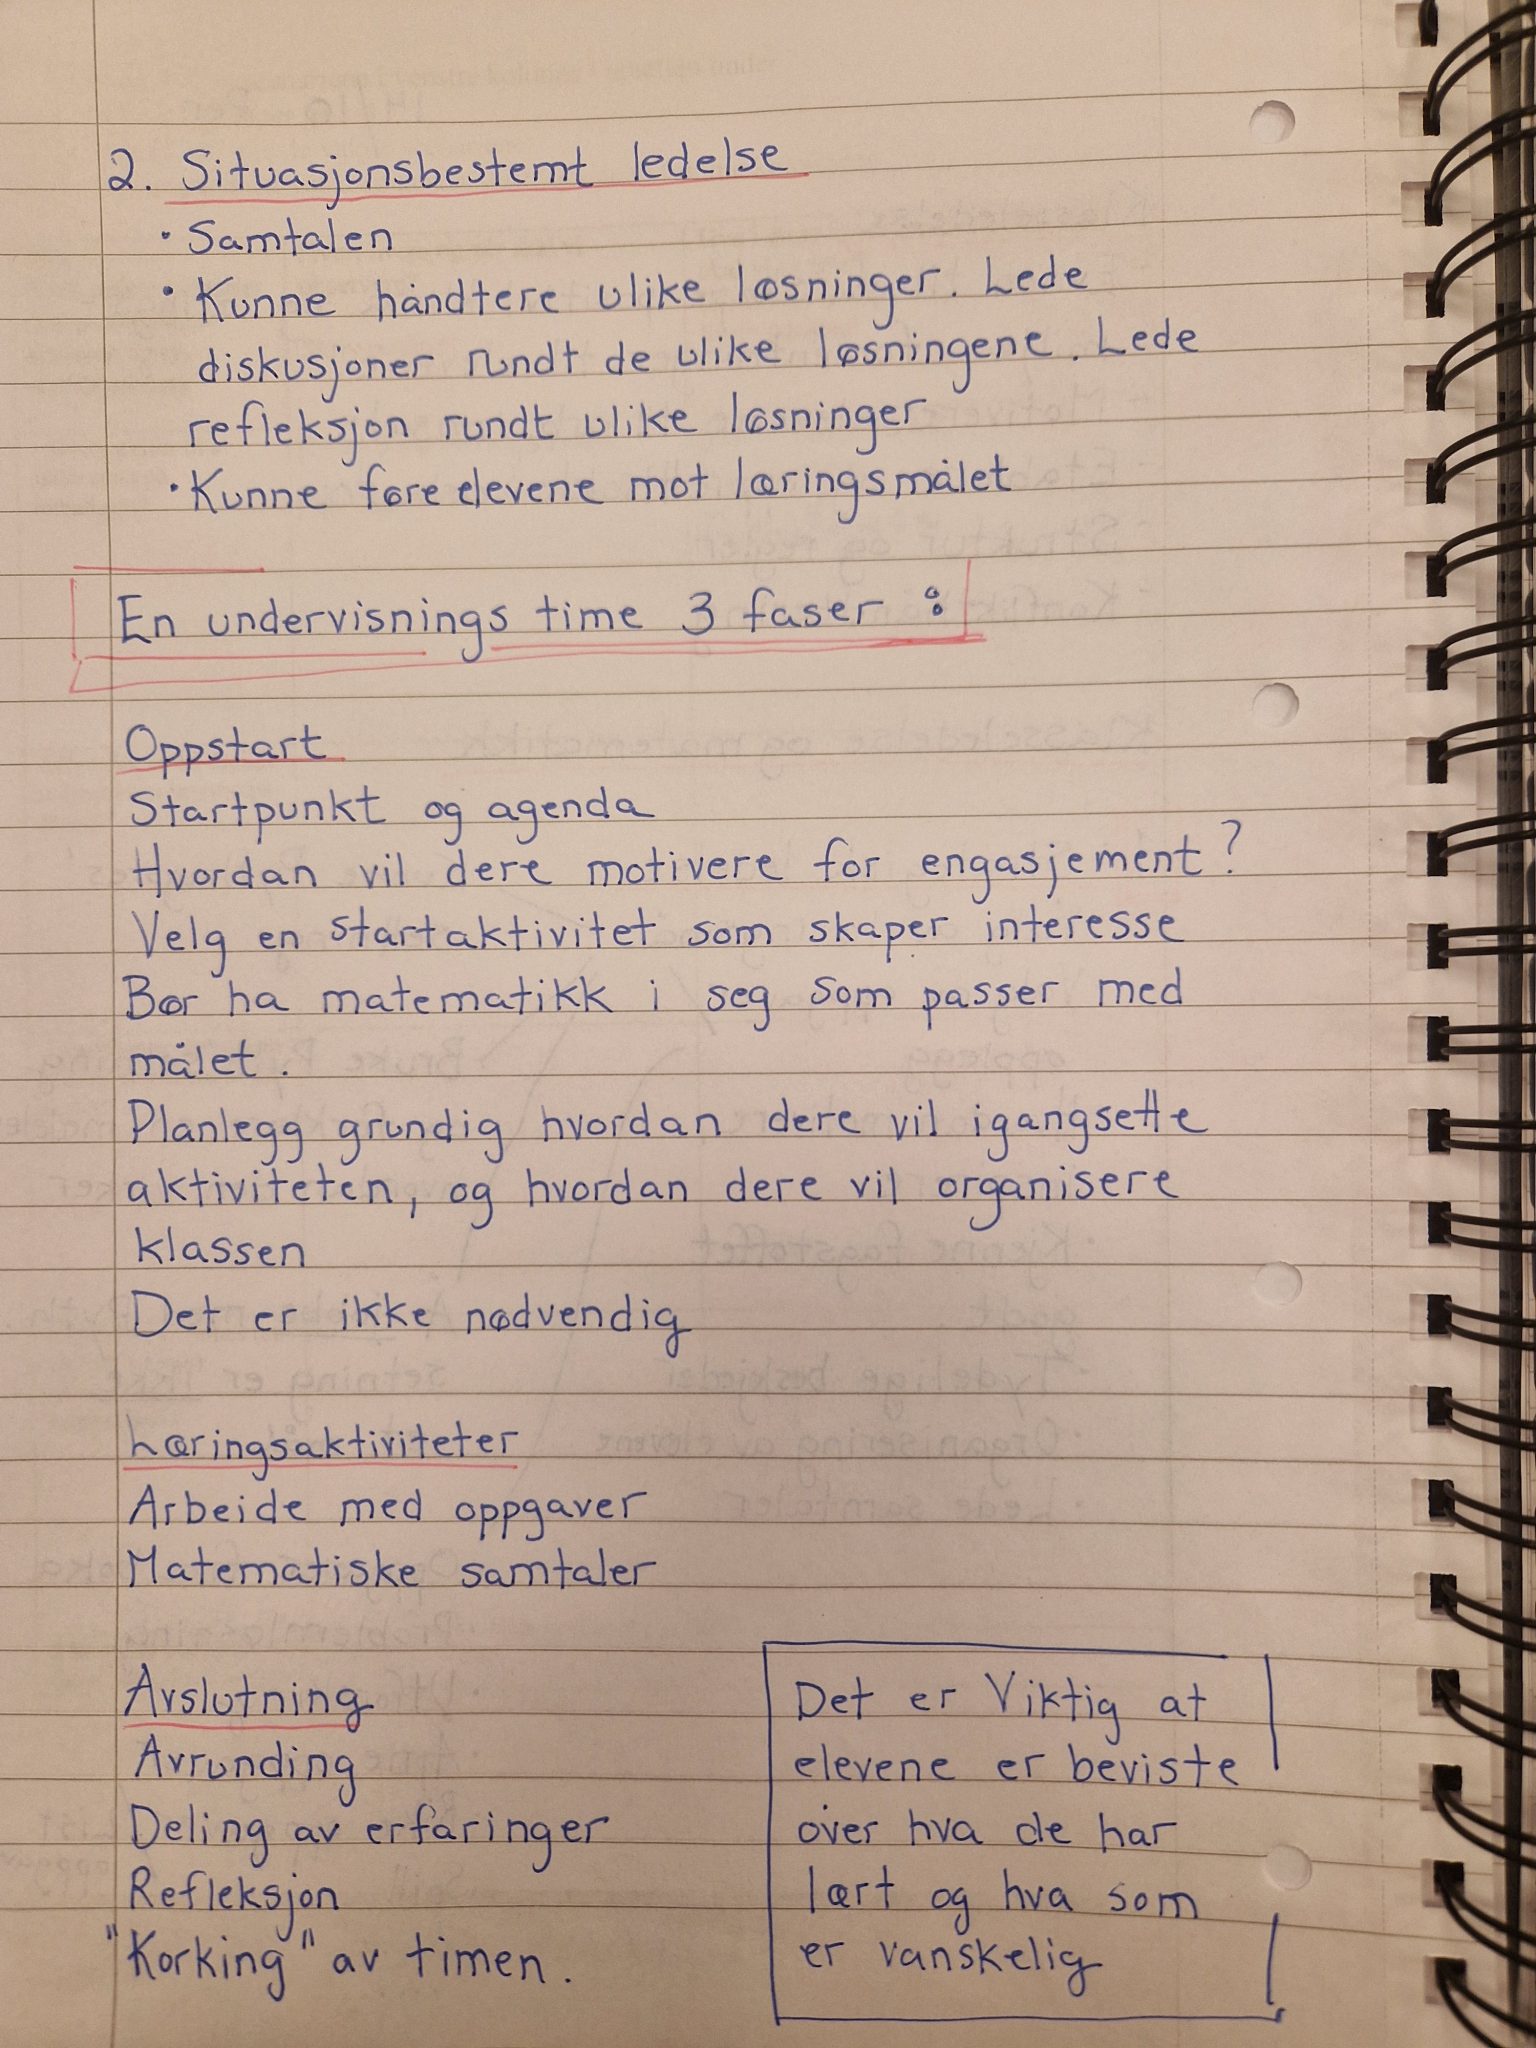 2. Situasjonsbestemt ledelse
• Samtalen
• Kunne håndtere ulike løsninger. Lede
diskusjoner rundt de ulike løsningene. Lede
refleksjon rundt ulike løsninger
• Kunne føre elevene mot læringsmålet
En undervisnings time 3 faser :
Oppstart
Startpunkt og agenda
Hvordan vil dere motivere for engasjement?
Velg en startaktivitet som skaper interesse
Bør ha matematikk i seg som passer med
målet.
Planlegg grundig hvordan dere vil igangsette
aktiviteten, og hvordan dere vil organisere
klassen
Det er ikke nødvendig
Læringsaktiviteter
Arbeide med oppgaver
Matematiske samtaler
Avslutning
Avrunding
Deling av erfaringer
Refleksjon
"Korking" av timen.
Det er Viktig at
elevene er beviste
over hva de har
lært og hva som
er vanskelig